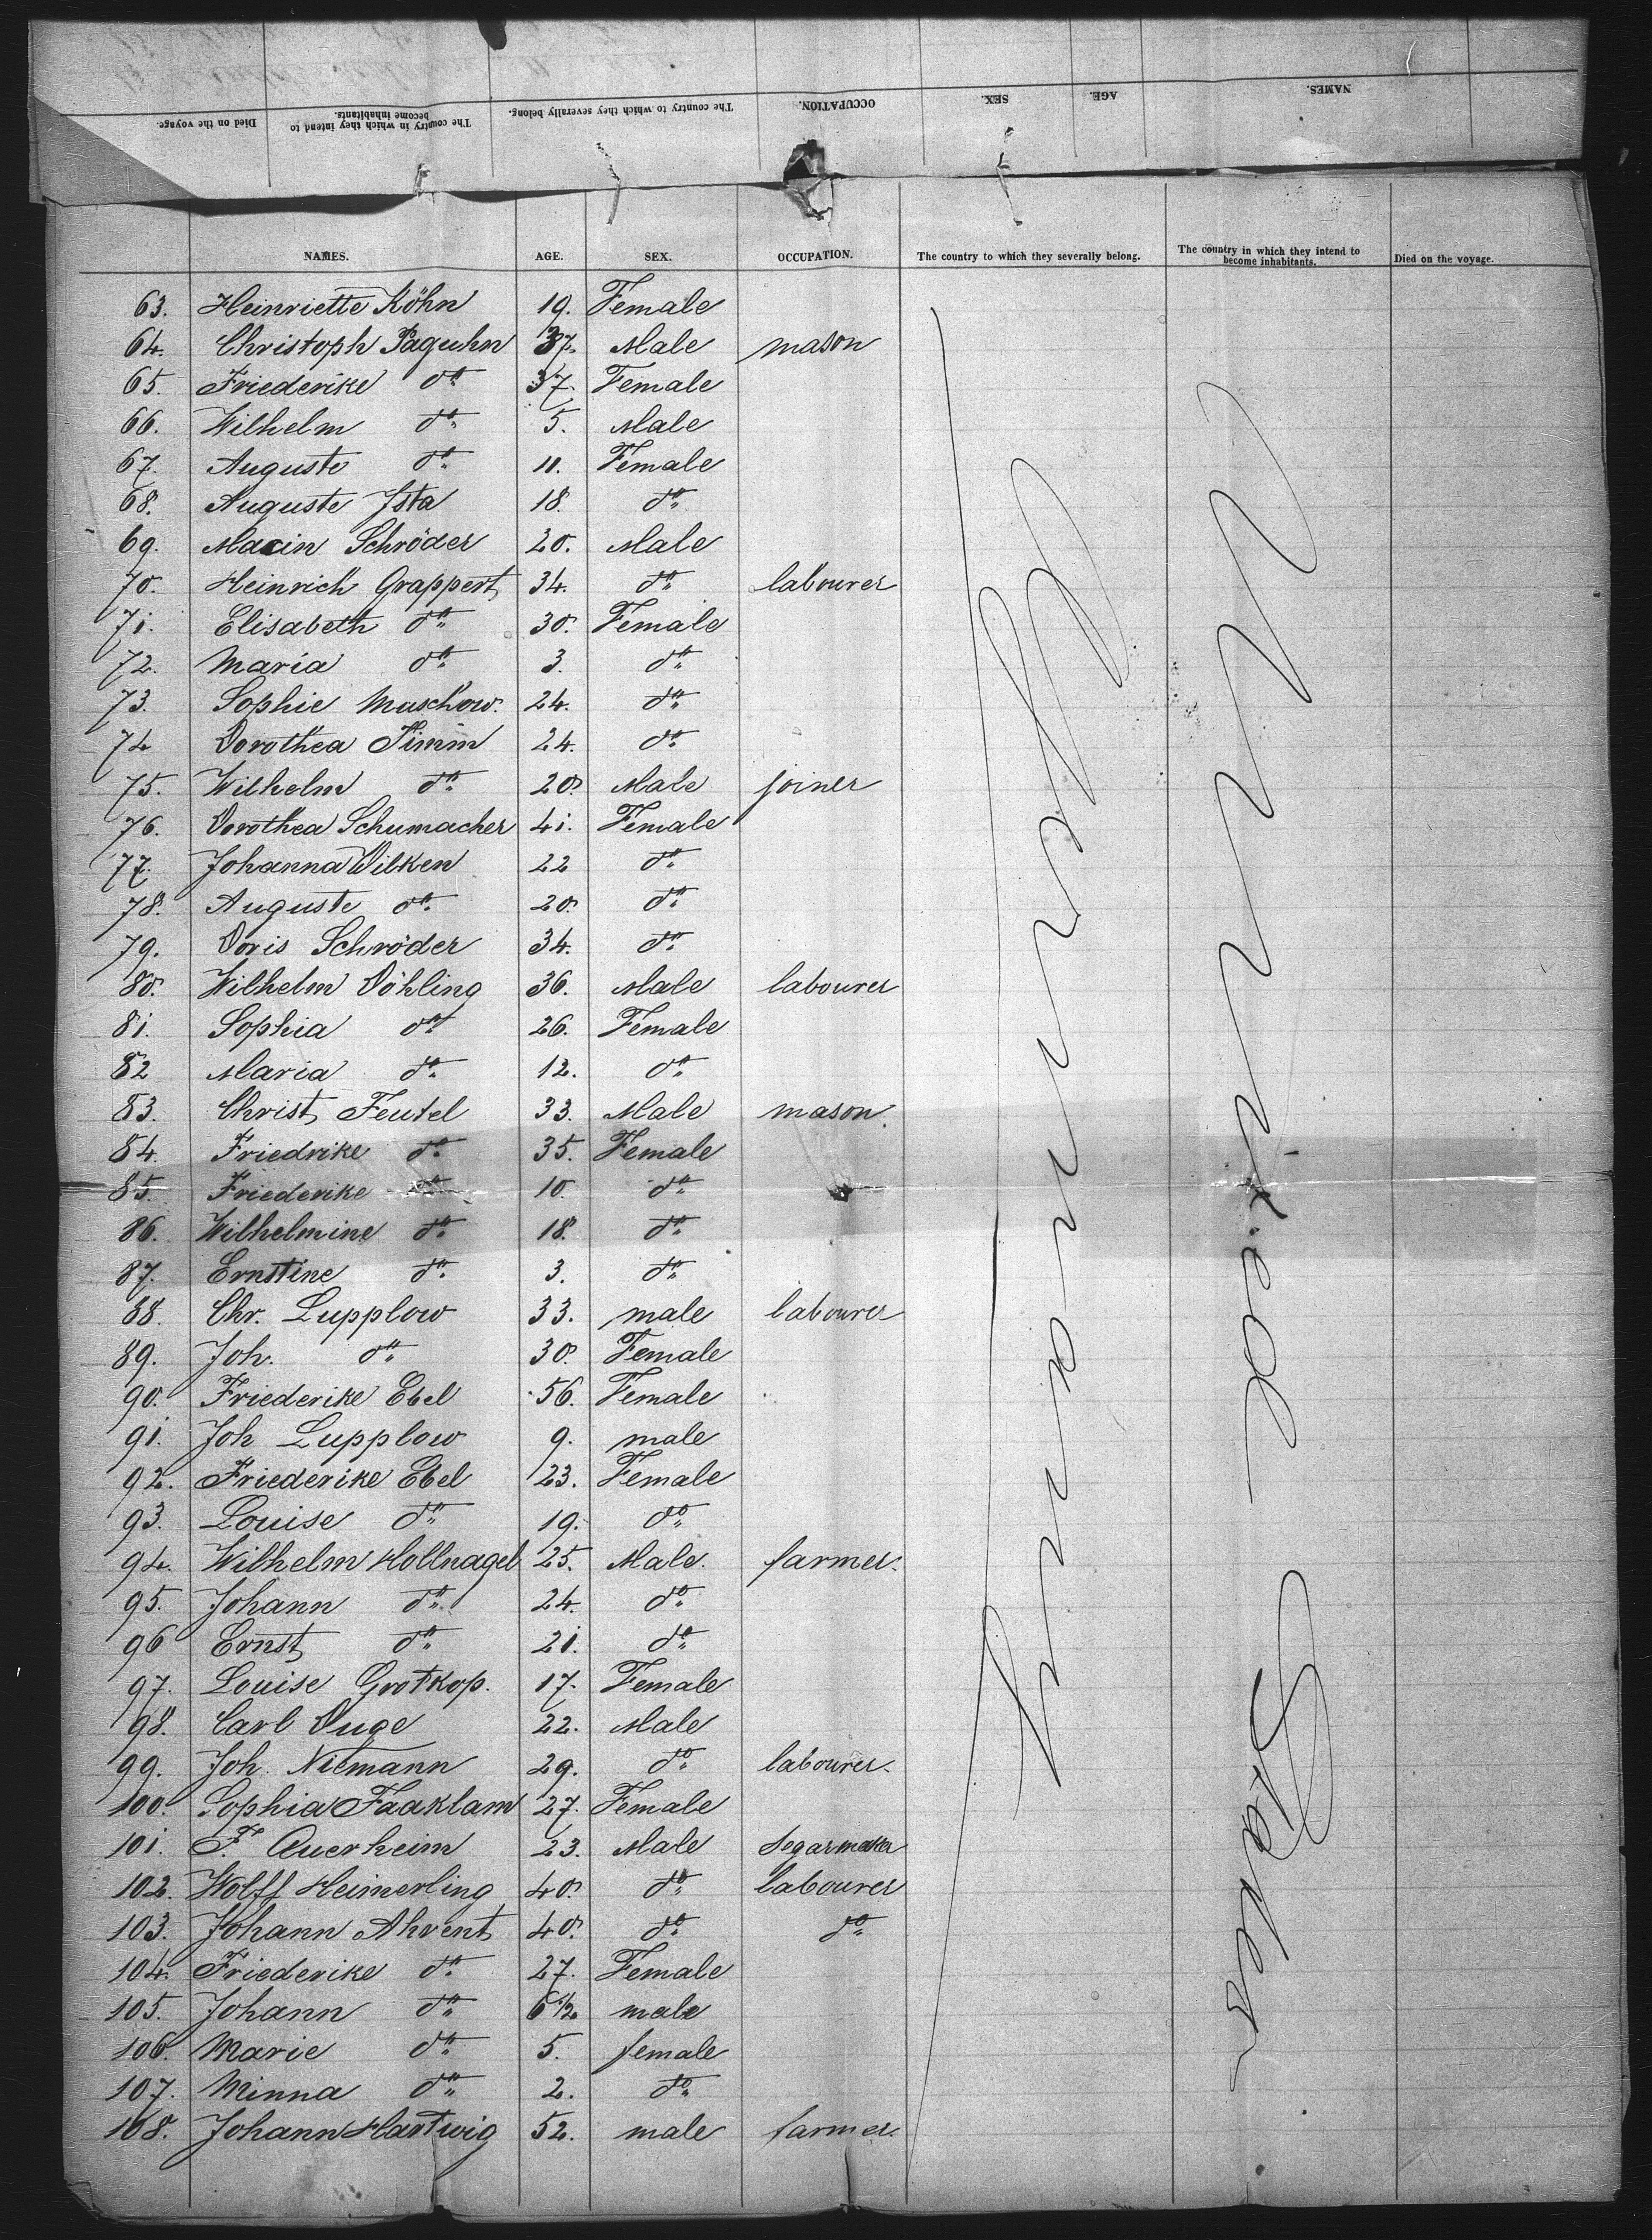 Died on the voyage. The country in which they intend to become inhabitants. The country to which they severally belong. OCCUPATION. SEX. AGE. NAMES.
NAMES. AGE. SEX. OCCUPATION. The country to which they severally belong. The country in which they intend to become inhabitants. Died on the voyage.
63. Heinriette Köhn 19. Female
64. Christoph Paguhn 37. Male mason
65. Friederike do 37. Female
66. Wilhelm do 5. Male
67. Auguste do 11. Female
68. Auguste Ista 18. do
69. Schröder 20. Male
70. Heinrich Grappert 34. do labourer
71. Elisabeth do 30. Female
72. Maria do 3. do
73. Sophie Muschow. 24. do
74 Dorothea Timm 24. do
75. Wilhelm do 20. Male joiner
76. Dorothea Schumacher 41. Female
77. Johanna Wilken 22 do
78. Auguste do 20. do
79. Doris Schröder 34. do
80. Wilhelm Döhling 36. Male labourer
81. Sophia do 26. Female
82 Maria do 12. do
83. Christ Feutel 33. Male mason.
84. Friedrike do 35. Female
85. Friederike do 10. do
86. Wilhelmine do 18. do
87. Ernstine do 3. do
88. Chr. Lupplow 33. male labourer
89. Joh. do 30. Female
90. Friederike Ebel 56. Female
91. Joh Lupplow 9. male
92. Friederike Ebel 23. Female
93. Louise do 19. do
94. Wilhelm Hollnagel 25. Male. farmer.
95. Johann do 24. do
96 Ernst do 21. do
97. Louise Grotkop. 17. Female
98. Carl Duge 22. Male
99. Joh. Niemann 29. do labourer.
100. Sophia Faaklam 27. Female
101. F. Auerheim 23. Male Segarmaker
102. Wolff Heimerling 40. do labourer
103. Johann Ahrent 40. do do
104. Friederike do 27. Female
105. Johann do 6 1/2 male
106. Marie do 5. female
107. Minna do 2. do
108. Johann Hartwig 52. male farmer.
Germany
United States of America